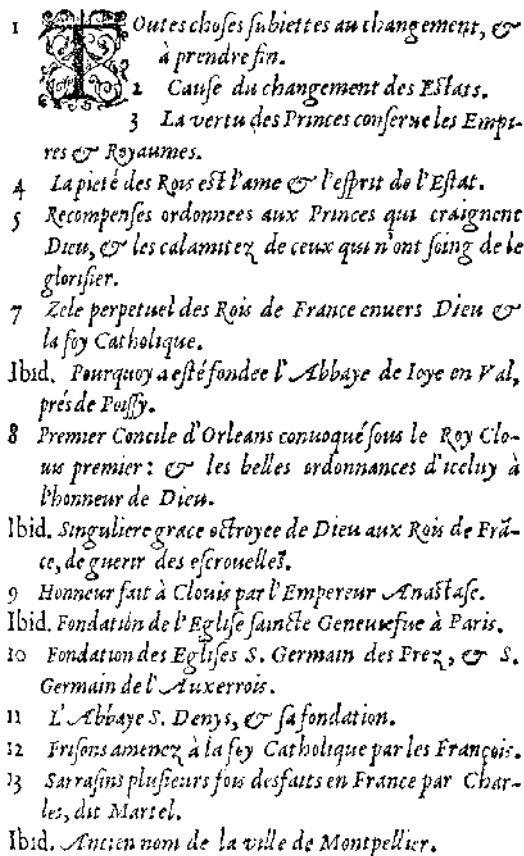 1 TOutes choſes ſubiettes au changement, &
à prendre fin.
2 Cauſe du changement des Eſtats.
3 La vertu des Princes conſerue les Empi-
res & Royaumes.
4 La pieté des Rois eſt l'ame & l'eſprit de l'Eſtat.
5 Recompenſes ordonnees aux Princes qui craignent
Dieu, & les calamitez de ceux qui n'ont ſoing de le
glorifier.
7 Zele perpetuel des Rois de France enuers Dieu &
la foy Catholique.
Ibid. Pourquoy a eſté fondee l'Abbaye de Ioye en Val,
prés de Poiſſy.
8 Premier Concile d'Orleans conuoqué ſous le Roy Clo-
uis premier: & les belles ordonnances d'iceluy à
l'honneur de Dieu.
Ibid. Singuliere grace octroyee de Dieu aux Rois de Frã-
ce, de guerir des eſcrouelles.
9 Honneur fait à Clouis par l'Empereur Anaſtaſe.
Ibid. Fondation de l'Egliſe ſaincte Geneuiefue à Paris.
10 Fondation des Egliſes S. Germain des Prez, & S.
Germain de l'Auxerrois.
11 L'Abbaye S. Denys, & ſa fondation.
12 Friſons amenez à la foy Catholique par les François.
13 Sarraſins pluſieurs fois desfaits en France par Char-
les, dit Martel.
Ibid. Ancien nom de la ville de Montpellier.